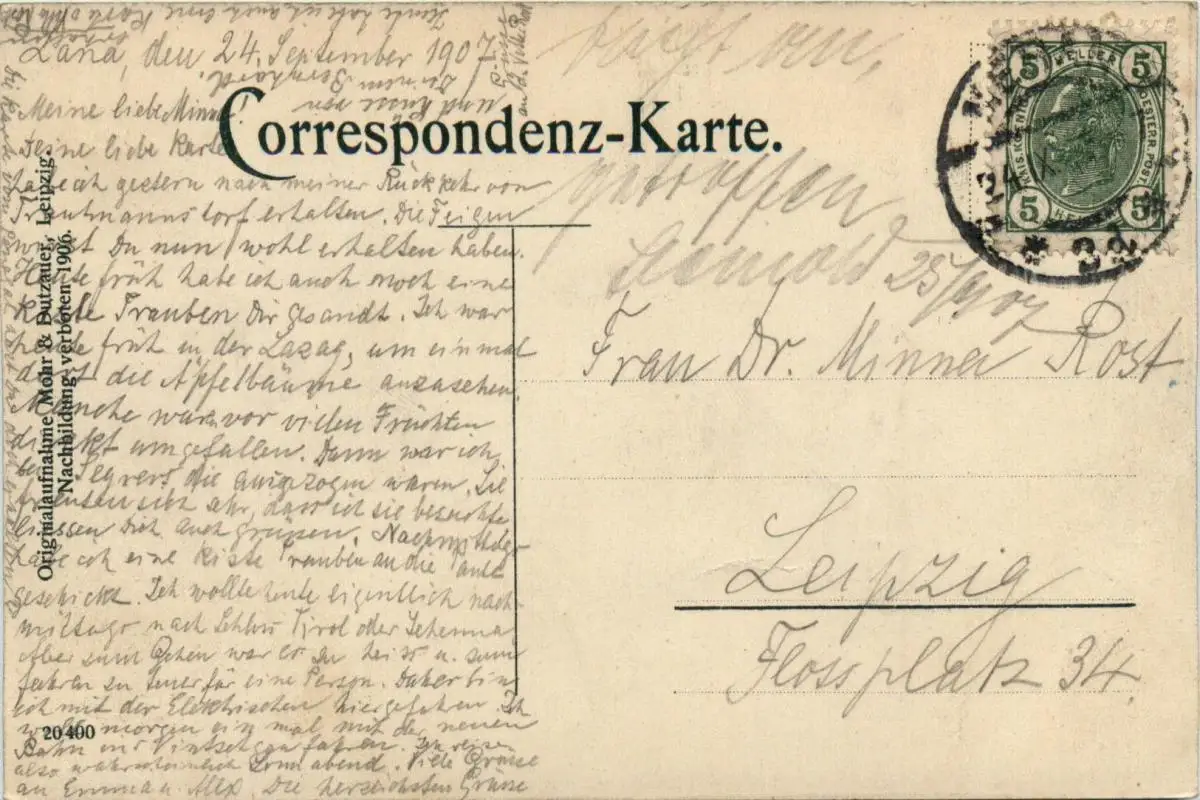 Lana, den 24. September 1907
Meine liebe Minna!
Deine liebe Karte
habe ich gestern nach meiner Rückkehr von
Trautmannsdorf erhalten. Die Feigen
wirst Du nun wohl erhalten haben.
Heute früh habe ich auch noch eine
Kiste Trauben Dir gesandt. Ich war
heute früh in der Lazag, um einmal
dort die Äpfelbäume anzusehen.
Manche waren vor vielen Früchten
direkt umgefallen. Dann war ich
bei die ausgezogen waren. Sie
freuten sich sehr, dass ich sie besuchte
liessen Dich auch grüssen. Nachmittags
habe ich eine Kiste Trauben an die
geschickt. Ich wollte heute eigentlich nach-
mittags nach Schloss Tirol oder Schenna
Aber zum Gehen war es zu heiss u. zum
fahren zu teuer für eine Person. Daher bin
ich mit der Elektrischen hiergefahren. Ich
will morgen einmal mit der neuen
Bahn ins Vintschgau fahren. Ich reise
also wahrscheinlich Sonnabend. Viele Grüsse
an Emma u. Alex. Die herzlichsten Grüsse
und Küsse von
Deinem Bernhard.
Heute habe ich auch eine Karte
erhalten
Correspondenz-Karte.
Originalaufnahme Mohr & Dutzauer, Leipzig.
Nachbildung verboten 1906.
20400
5 HELLER 5
KAIS. KOENIGL. OESTERR. POST
5 HELLER 5
24 IX
25/9 07
Frau Dr. Minna Rost
Leipzig
Flossplatz 34.